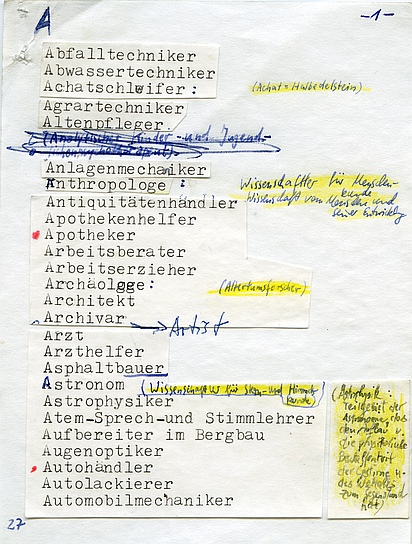 A
-1-
Abfalltechniker
Abwassertechniker
Achatschleifer: (Achat = Halbedelstein)
Agrartechniker
Altenpfleger.
(Analytischer Kinder- und Jugend-
Anlagenmechaniker
Anthropologe: Wissenschaftler für Menschen-
kunde
Wissenschaft vom Menschen und
seiner Entwicklung
Antiquitätenhändler
Apothekenhelfer
Apotheker
Arbeitsberater
Arbeitserzieher
Archäolgge: (Altertumsforscher)
Architekt
Archivar
Artist
Arzt
Arzthelfer
Asphaltbauer
Astronom (Wissenschaftler für Stern- und Himmels
kunde)
Astrophysiker
Atem-Sprech-und Stimmlehrer
Aufbereiter im Bergbau
Augenoptiker
Autohändler
Autolackierer
Automobilmechaniker
(Astrophysik:
Teilgebiet der
Astronomie, das
den Aufbau u.
die physikalische
Beschaffenheit
der Gestirne u.
des Weltalls
zum Gegenstand
hat)
27